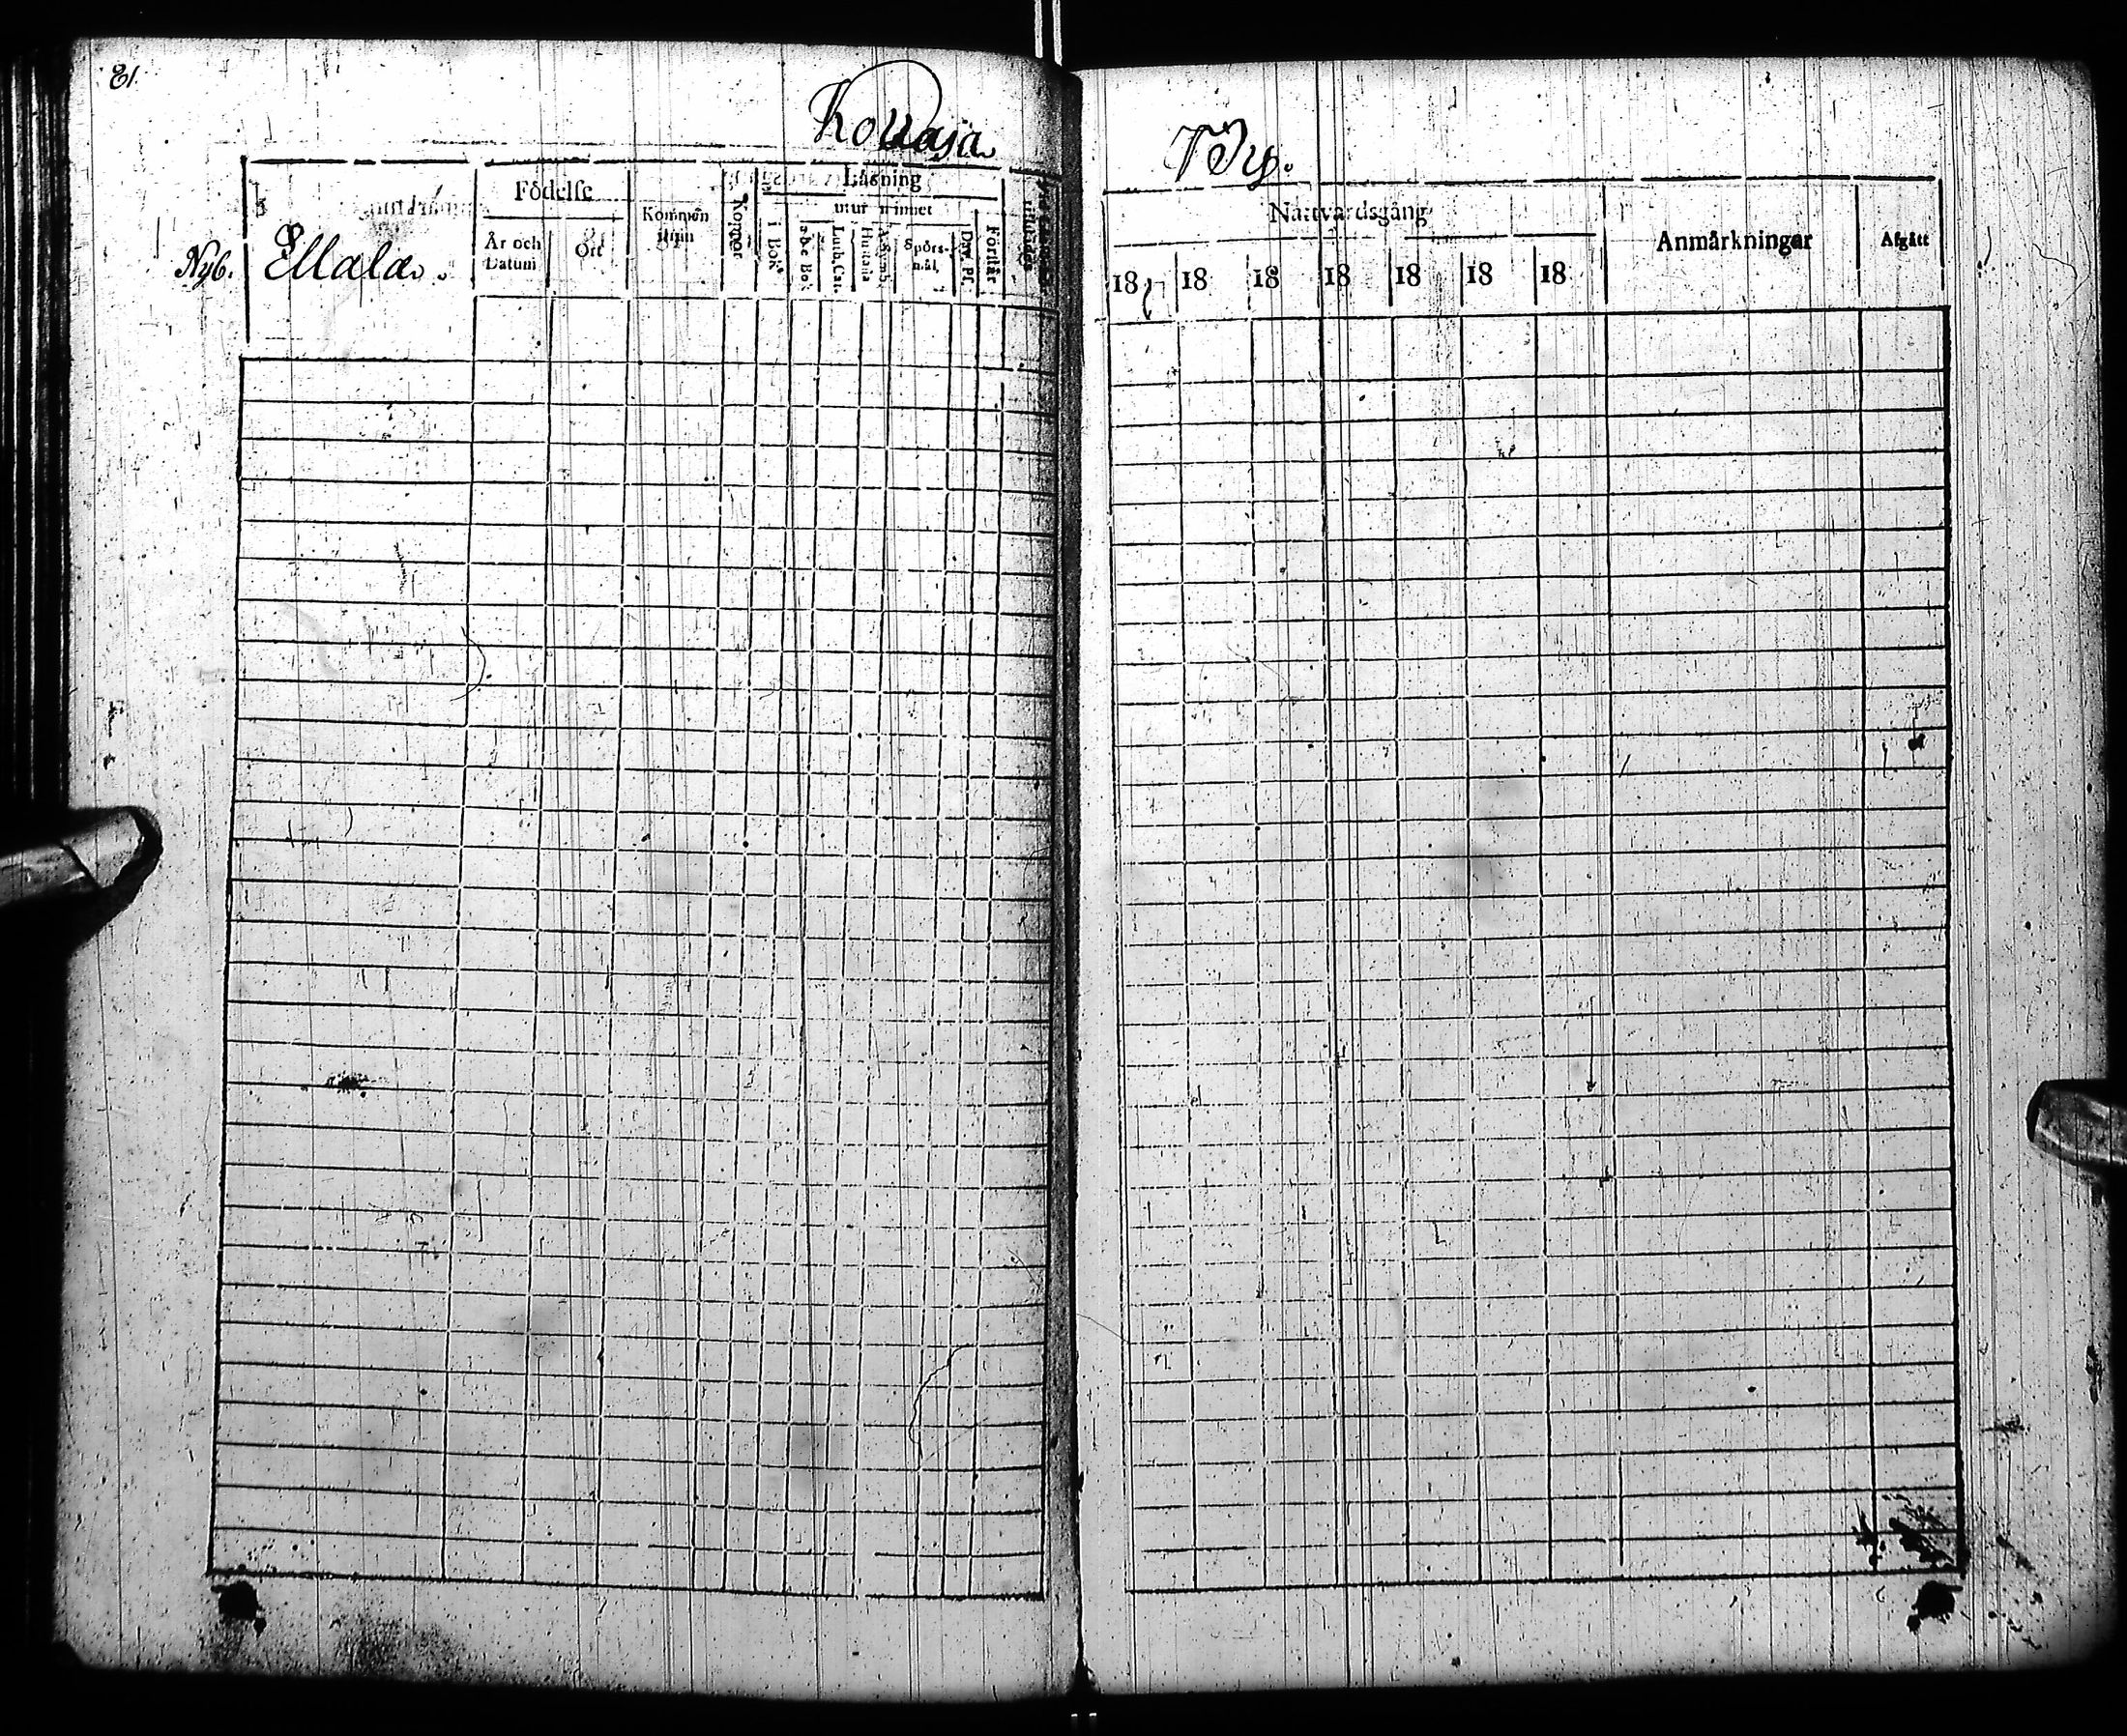 81.
Kouvaja
By.
Nyb. Ellala.
Födelſe
År och Datum
Ort
Kommen ifrån
Koppor
Läsning
utur minnet
i Bok
a b c Bok
Luth. Cat.
Hustafla
A. Symb.
Spörsmål
Dav. Pſ.
Förstår
Nattvardsgång
18 18 18 18 18 18 18
Anmärkningar
Afgått